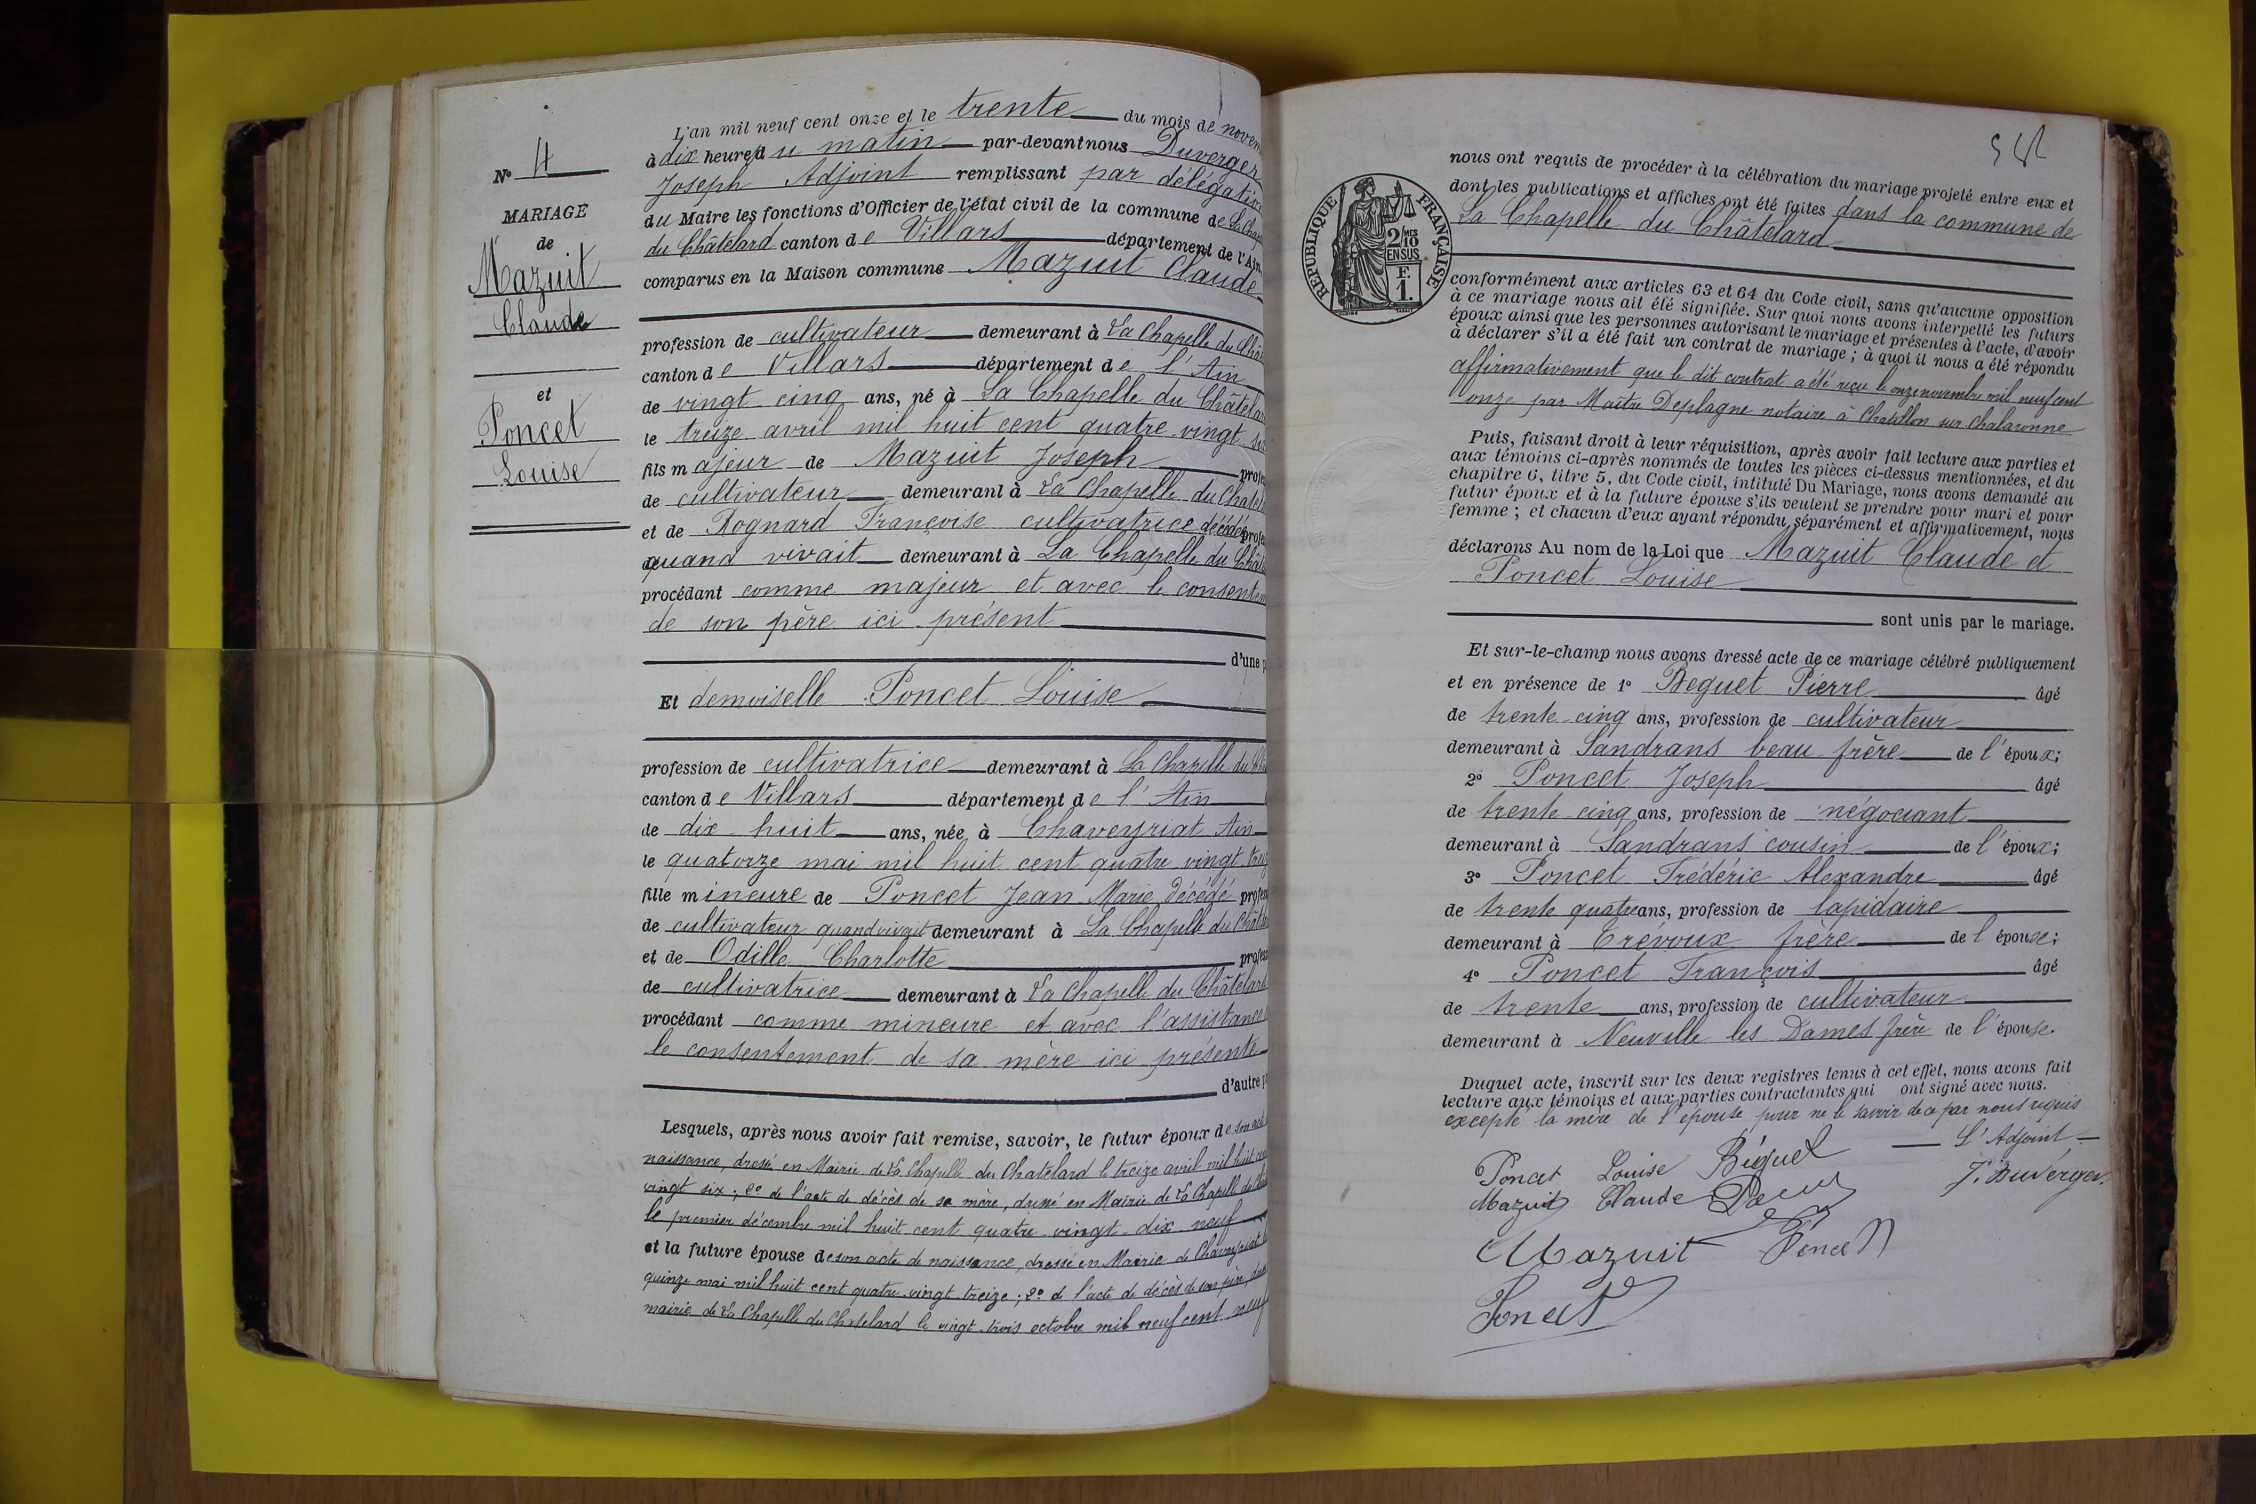 N° 4
MARIAGE
de
Mazuit
Claude
et
Poncet
Louise
L'an mil neuf cent onze et le trente du mois de novem
à dix heures du matin par-devant nous Duverger
Joseph Adjoint remplissant par délégation
du Maire les fonctions d'Officier de l'état civil de la commune de La Chap
du Châtelard canton de Villars département de l'Ain
comparus en la Maison commune Mazuit Claude
profession de cultivateur demeurant à La Chapelle du Châ
canton de Villars département de l'Ain
de vingt cinq ans, né à La Chapelle du Châtelar
le treize avril mil huit cent quatre vingt six
fils majeur de Mazuit Joseph profes
de cultivateur demeurant à La Chapelle du Chatel
et de Rognard Françoise cultivatrice décédée profes
quand vivait demeurant à La Chapelle du Châte
procédant comme majeur et avec le consentem
de son père ici présent
d'une p
Et demoiselle Poncet Louise
profession de cultivatrice demeurant à La Chapelle du Châ
canton de Villars département de l'Ain
de dix huit ans, née à Chaveyriat Ain
le quatorze mai mil huit cent quatre vingt treiz
fille mineure de Poncet Jean Marie décédé profes
de cultivateur quand vivait demeurant à La Chapelle du Châtel
et de Odille Charlotte profes
de cultivatrice demeurant à La Chapelle du Châtelard
procédant comme mineure et avec l'assistance
le consentement de sa mère ici présente
d'autre p
Lesquels, après nous avoir fait remise, savoir, le futur époux de son acte
naissance, dressé en Mairie de La Chapelle du Chatelard le treize avril mil huit
vingt six ; 2° de l'acte de décès de sa mère, dressé en Mairie de La Chapelle du Châ
le premier décembre mil huit cent quatre vingt dix neuf
et la future épouse de son acte de naissance, dressé en Mairie de Chaveyriat
quinze mai mil huit cent quatre vingt treize ; 2° de l'acte de décès de son père,
mairie de La Chapelle du Chatelard le vingt trois octobre mil neuf cent neuf
RÉPUBLIQUE FRANÇAISE
2 MES
10
EN SUS
F.
1.
nous ont requis de procéder à la célébration du mariage projeté entre eux et
dont les publications et affiches ont été faites dans la commune de
La Chapelle du Châtelard
conformément aux articles 63 et 64 du Code civil, sans qu'aucune opposition
à ce mariage nous ait été signifiée. Sur quoi nous avons interpellé les futurs
époux ainsi que les personnes autorisant le mariage et présentes à l'acte, d'avoir
à déclarer s'il a été fait un contrat de mariage ; à quoi il nous a été répondu
affirmativement que le dit contrat a été reçu le onze novembre mil neuf cent
onze par Maître Deplagne notaire à Chatillon sur Chalaronne
Puis, faisant droit à leur réquisition, après avoir fait lecture aux parties et
aux témoins ci-après nommés de toutes les pièces ci-dessus mentionnées, et du
chapitre 6, titre 5, du Code civil, intitulé Du Mariage, nous avons demandé au
futur époux et à la future épouse s'ils veulent se prendre pour mari et pour
femme ; et chacun d'eux ayant répondu séparément et affirmativement, nous
déclarons Au nom de la Loi que Mazuit Claude et
Poncet Louise
sont unis par le mariage.
Et sur-le-champ nous avons dressé acte de ce mariage célébré publiquement
et en présence de 1° Beguet Pierre âgé
de trente cinq ans, profession de cultivateur
demeurant à Sandrans beau frère de l'époux;
2° Poncet Joseph âgé
de trente cinq ans, profession de négociant
demeurant à Sandrans cousin de l'époux;
3° Poncet Frédéric Alexandre âgé
de trente quatre ans, profession de lapidaire
demeurant à Trévoux frère de l'épouse;
4° Poncet François âgé
de trente ans, profession de cultivateur
demeurant à Neuville les Dames frère de l'épouse.
Duquel acte, inscrit sur les deux registres tenus à cet effet, nous avons fait
lecture aux témoins et aux parties contractantes qui ont signé avec nous.
excepté la mère de l'épouse pour ne le savoir de ce par nous requis
L'Adjoint
Poncet Louise Béguet
J. Duverger
Mazuit Claude
Mazuit Poncet
Poncet